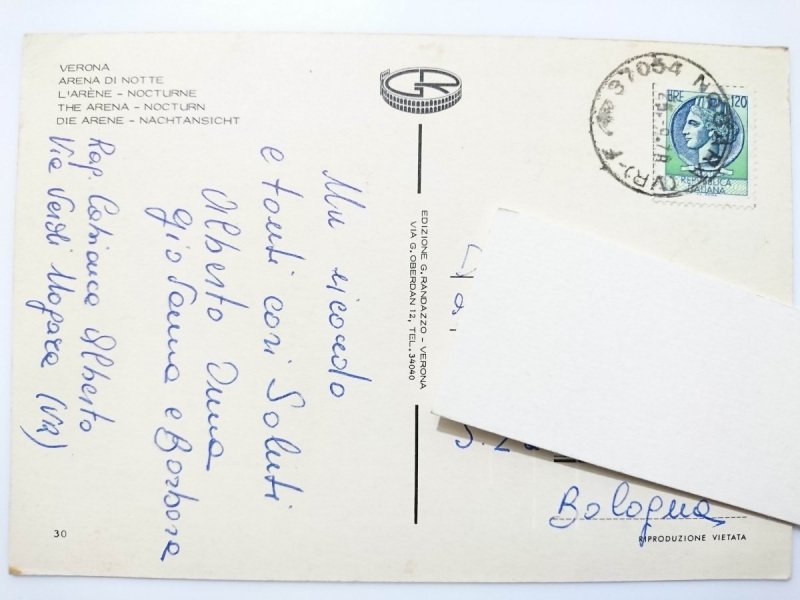 VERONA
ARENA DI NOTTE
L'ARÈNE - NOCTURNE
THE ARENA - NOCTURN
DIE ARENE - NACHTANSICHT
GR
37054 NOGARA (VR)
LIRE 120
REPUBBLICA
ITALIANA
Un ricordo
e tanti cari Saluti
Alberto Anna
Giovanna e Barbara
Rag. Alberto
Via Verdi Nogara (VR)
EDIZIONE G. RANDAZZO - VERONA
VIA G. OBERDAN 12, TEL. 34040
Bologna
30
RIPRODUZIONE VIETATA